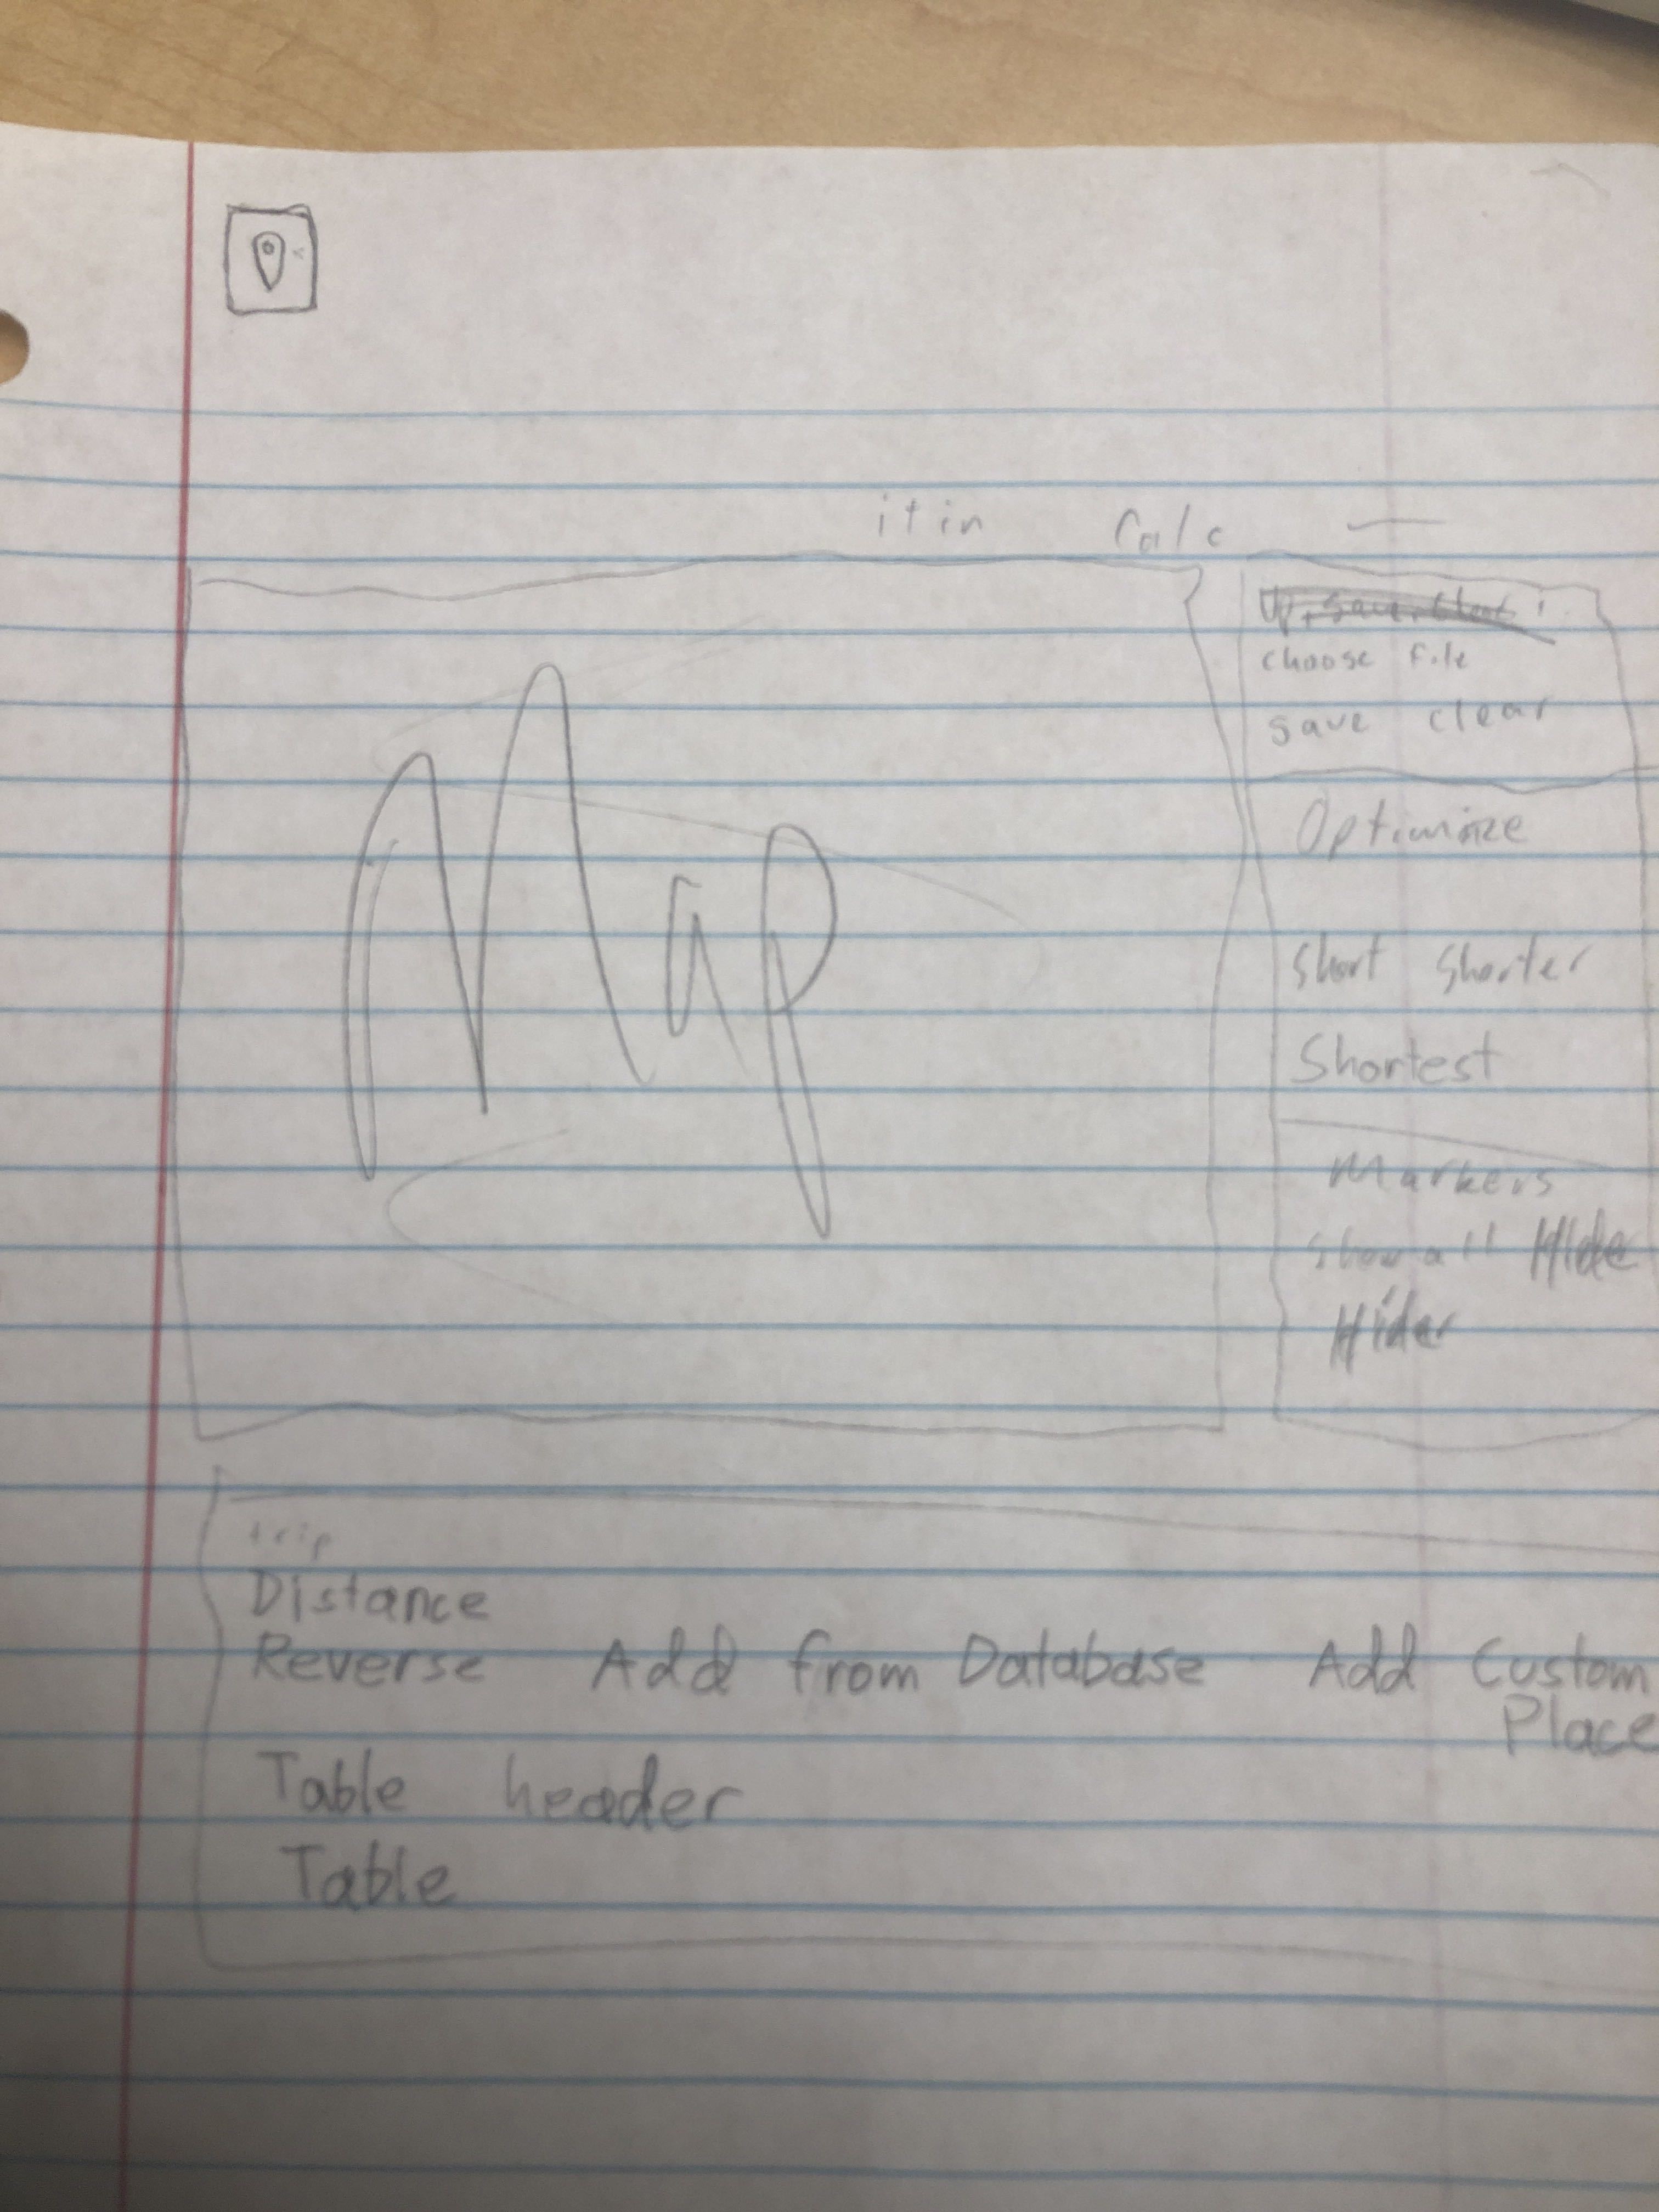 itin Calc
choose file
save clear
Optimize
Short Shorter
Shortest
Markers
Show all Hide
Hider
Map
trip
Distance
Reverse Add from Database Add Custom
Place
Table header
Table